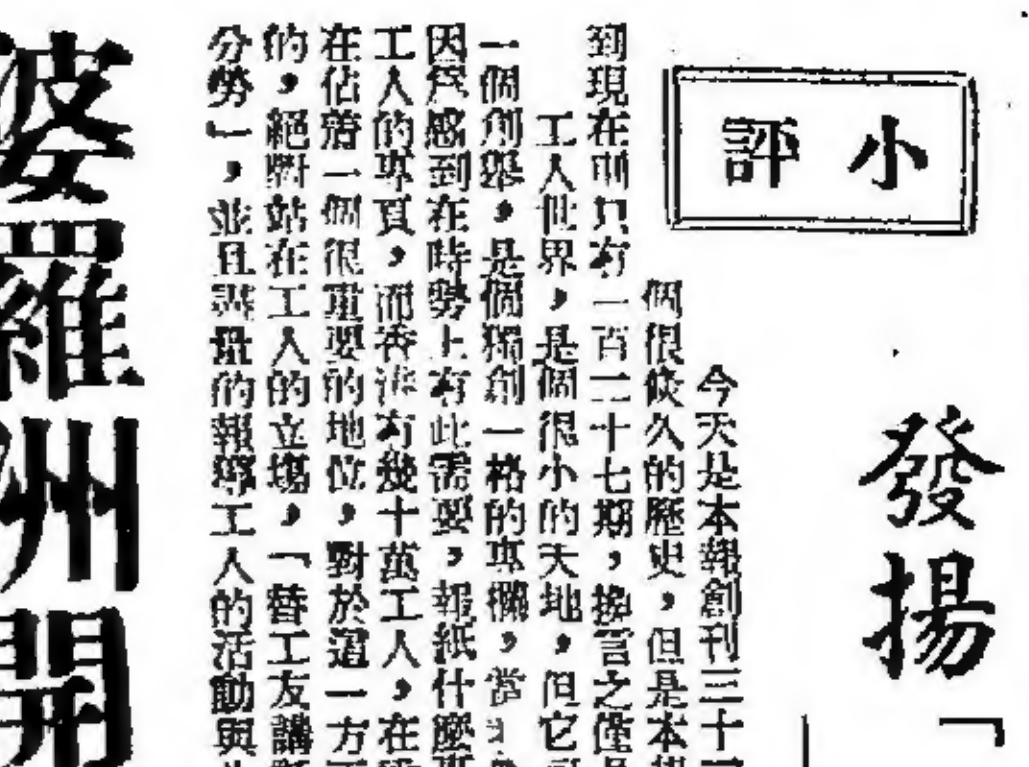 小評
發揚「
今天是本報創刊三十
個很悠久的歷史，但是本
到現在前只有一百二十七期，換言之僅
工人世界，是個很小的天地，但它
一個創舉，是個獨創一格的專欄，當
因爲感到在時勢上有此需要，報紙什麼
工人的專頁，而香港有幾十萬工人，在
在佔着一個很重要的地位，對於這一方
的，絕對站在工人的立塲，「替工友講
分勞」，並且盡量的報導工人的活動與
婆羅洲開